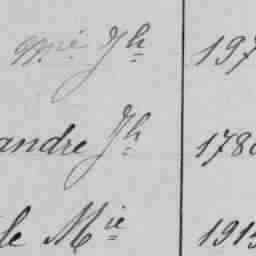 mie Jh 197
andre Jh 178
le Mie 191